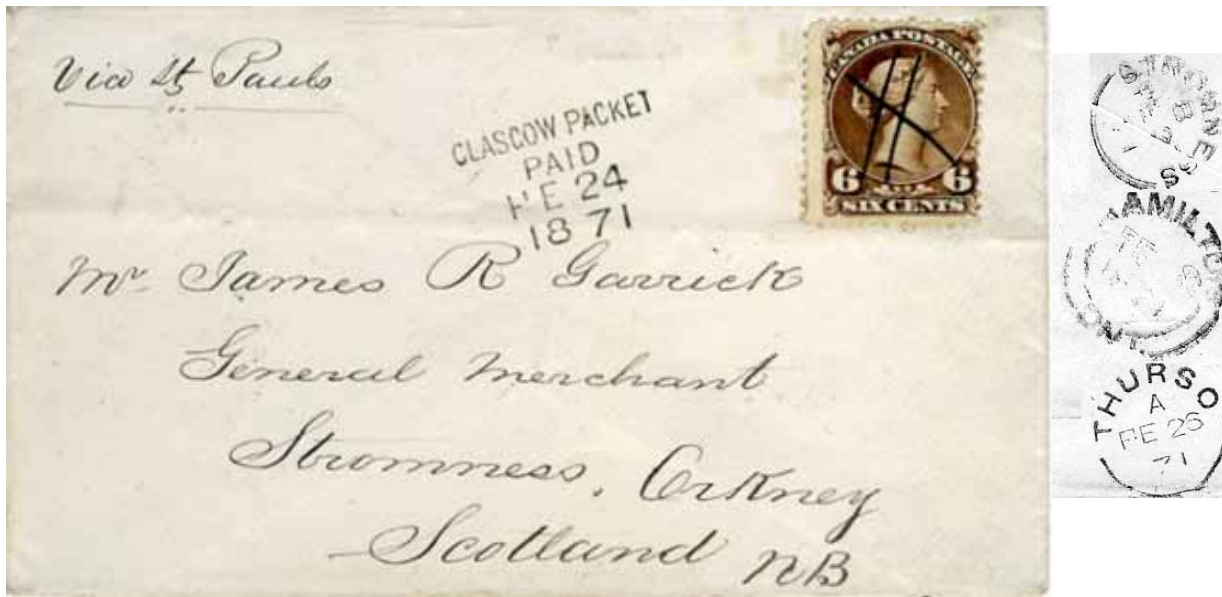 Via St Pauls
GLASGOW PACKET
PAID
FE 24
1871
CANADA POSTAGE
6 6
SIX CENTS
Mr James R Garrick
General Merchant
Stromness, Orkney
Scotland NB
STROMNESS
HAMILTON
FE
ONT.
THURSO
A
FE 26
71